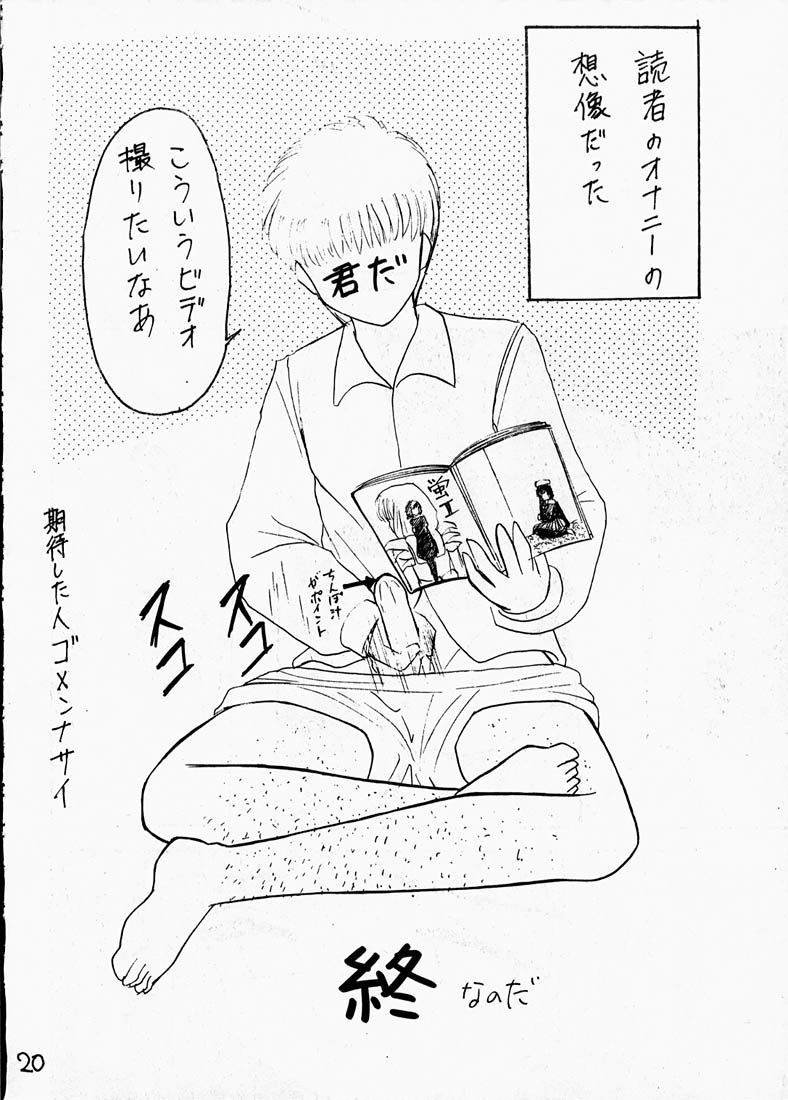 読者のオナニーの
想像だった
こういうビデオ
撮りたいなあ
君だ
蛍工
ちんぽ汁
がポイント
スコ
スコ
期待した人ゴメンナサイ
終
なのだ
20